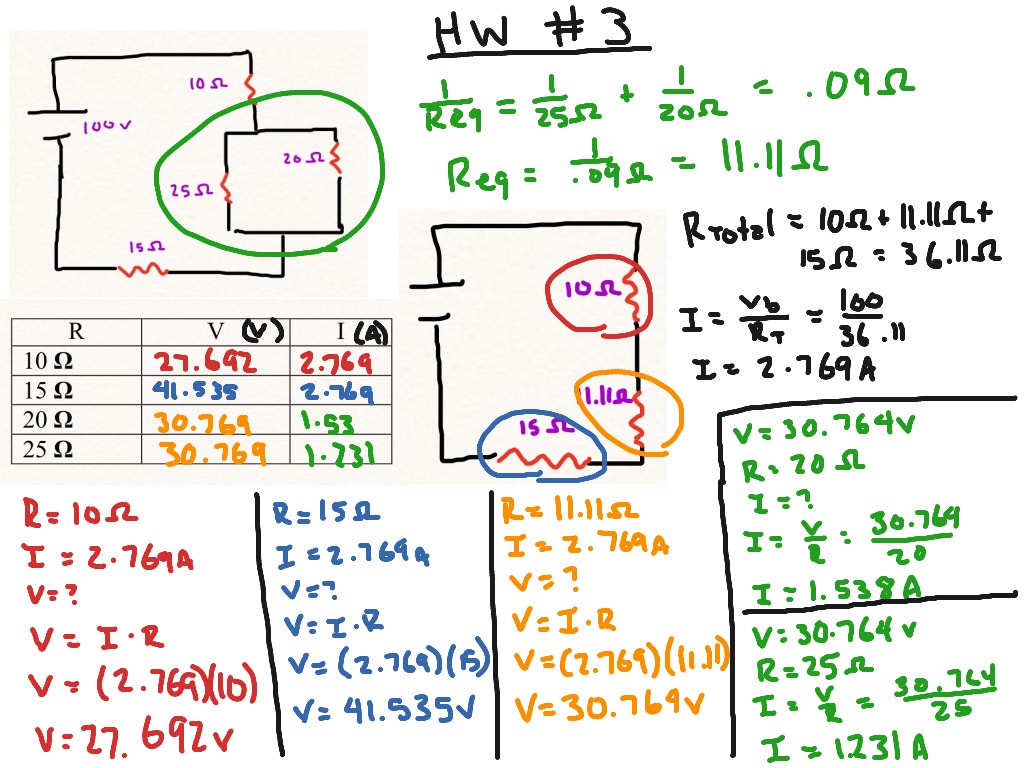 HW #3
10Ω
100v
20Ω
25Ω
15Ω
1/Req = 1/25Ω + 1/20Ω = .09Ω
Req = 1/.09Ω = 11.11Ω
RTotal = 10Ω + 11.11Ω +
15Ω = 36.11Ω
I = Vb/RT = 100/36.11
I = 2.769A
10Ω
11.11Ω
15Ω
R V (V) I (A)
10 Ω 27.692 2.769
15 Ω 41.535 2.769
20 Ω 30.769 1.53
25 Ω 30.769 1.231
R = 10Ω
I = 2.769A
V = ?
V = I·R
V = (2.769)(10)
V = 27.692v
R = 15Ω
I = 2.769A
V = ?
V = I·R
V = (2.769)(15)
V = 41.535v
R = 11.11Ω
I = 2.769A
V = ?
V = I·R
V = (2.769)(11.11)
V = 30.769v
V = 30.764v
R = 20Ω
I = ?
I = V/R = 30.769/20
I = 1.538A
V = 30.764v
R = 25Ω
I = V/R = 30.764/25
I = 1.231A